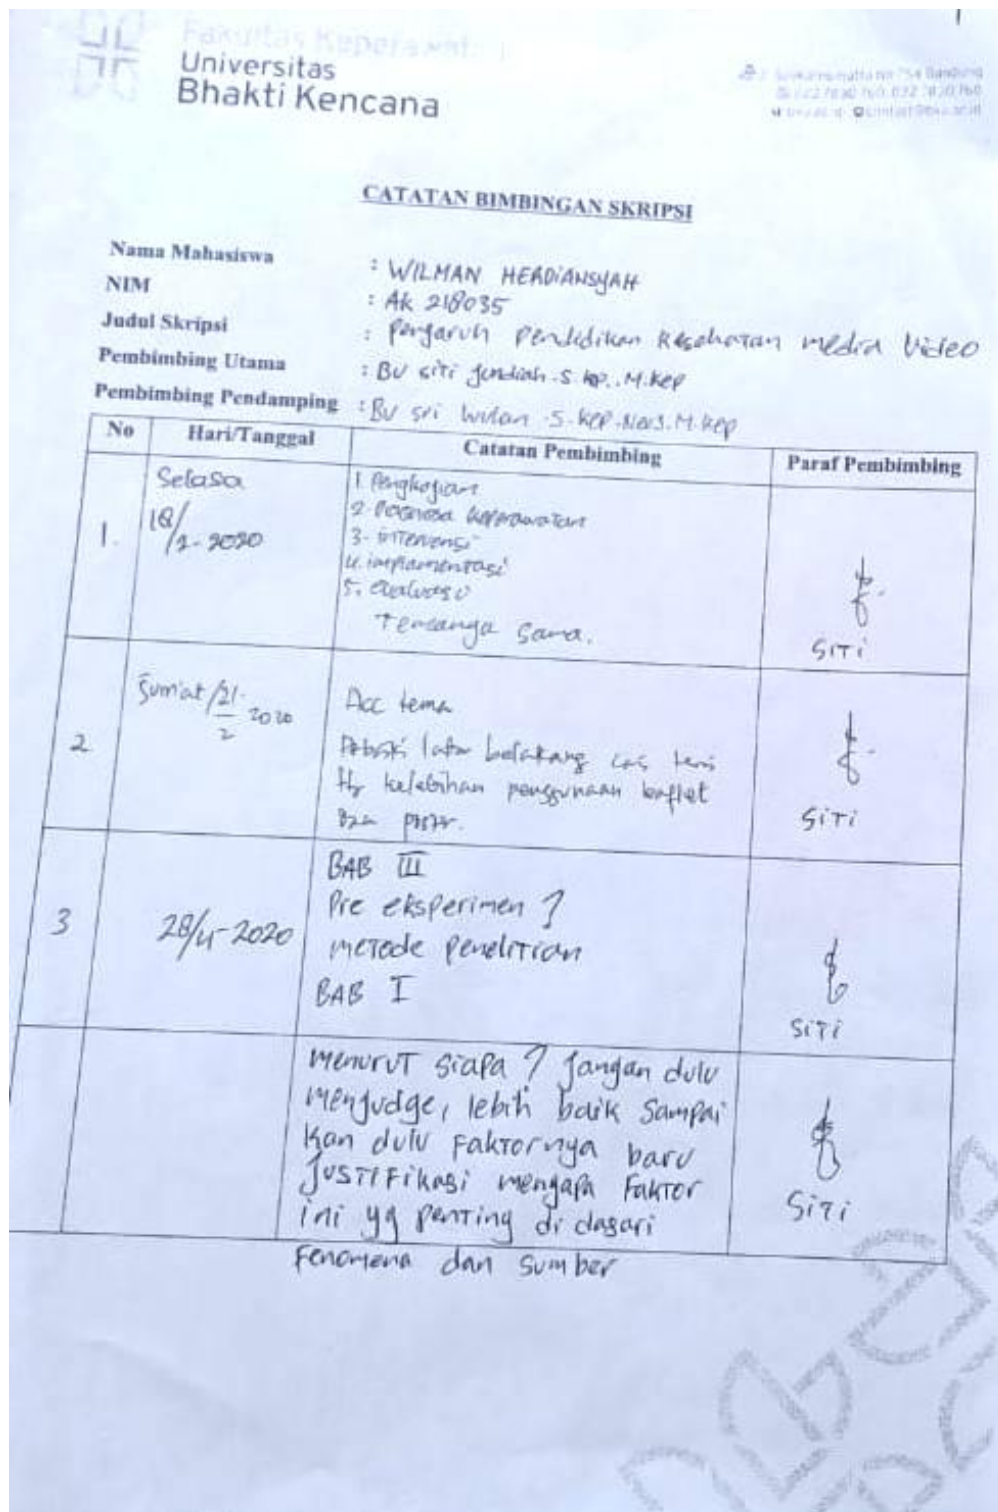 Fakultas Keperawatan
Universitas
Bhakti Kencana
CATATAN BIMBINGAN SKRIPSI
Nama Mahasiswa : WILMAN HERDIANSYAH
NIM : AK 218035
Judul Skripsi : Pengaruh Pendidikan Kesehatan media Video
Pembimbing Utama : BU siti Jundiah . S.kp., M.Kep
Pembimbing Pendamping : BU sri Wulan . S.Kep.Ners.M.Kep
No Hari/Tanggal Catatan Pembimbing Paraf Pembimbing
1. Selasa
18/2-2020
1. Pengkajian
2. Diagnosa keperawatan
3. intervensi
4. implamentasi
5. evaluasi
SITI
2 Jum'at /21-
2 2020
Acc tema
latar belakang
kelebihan penggunaan
SITI
3 28/4-2020
BAB III
Pre eksperimen ?
metode Penelitian
BAB I
SITI
menurut siapa ? Jangan dulu
mengjudge, lebih baik Sampai
kan dulu Faktornya baru
JUSTIFikasi mengapa Faktor
ini yg penting di dasari
Fenomena dan Sumber
SITI